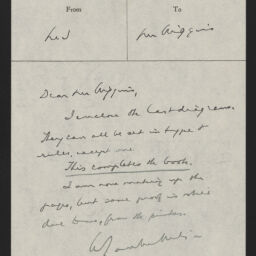 From To
Mr Wiggins
Dear Mr Wiggins,
I enclose the last diagrams.
They can all be set in type &
rules, except one.
This completes the book.
I am now making up the
pages, but some proof is still
due from the printers.